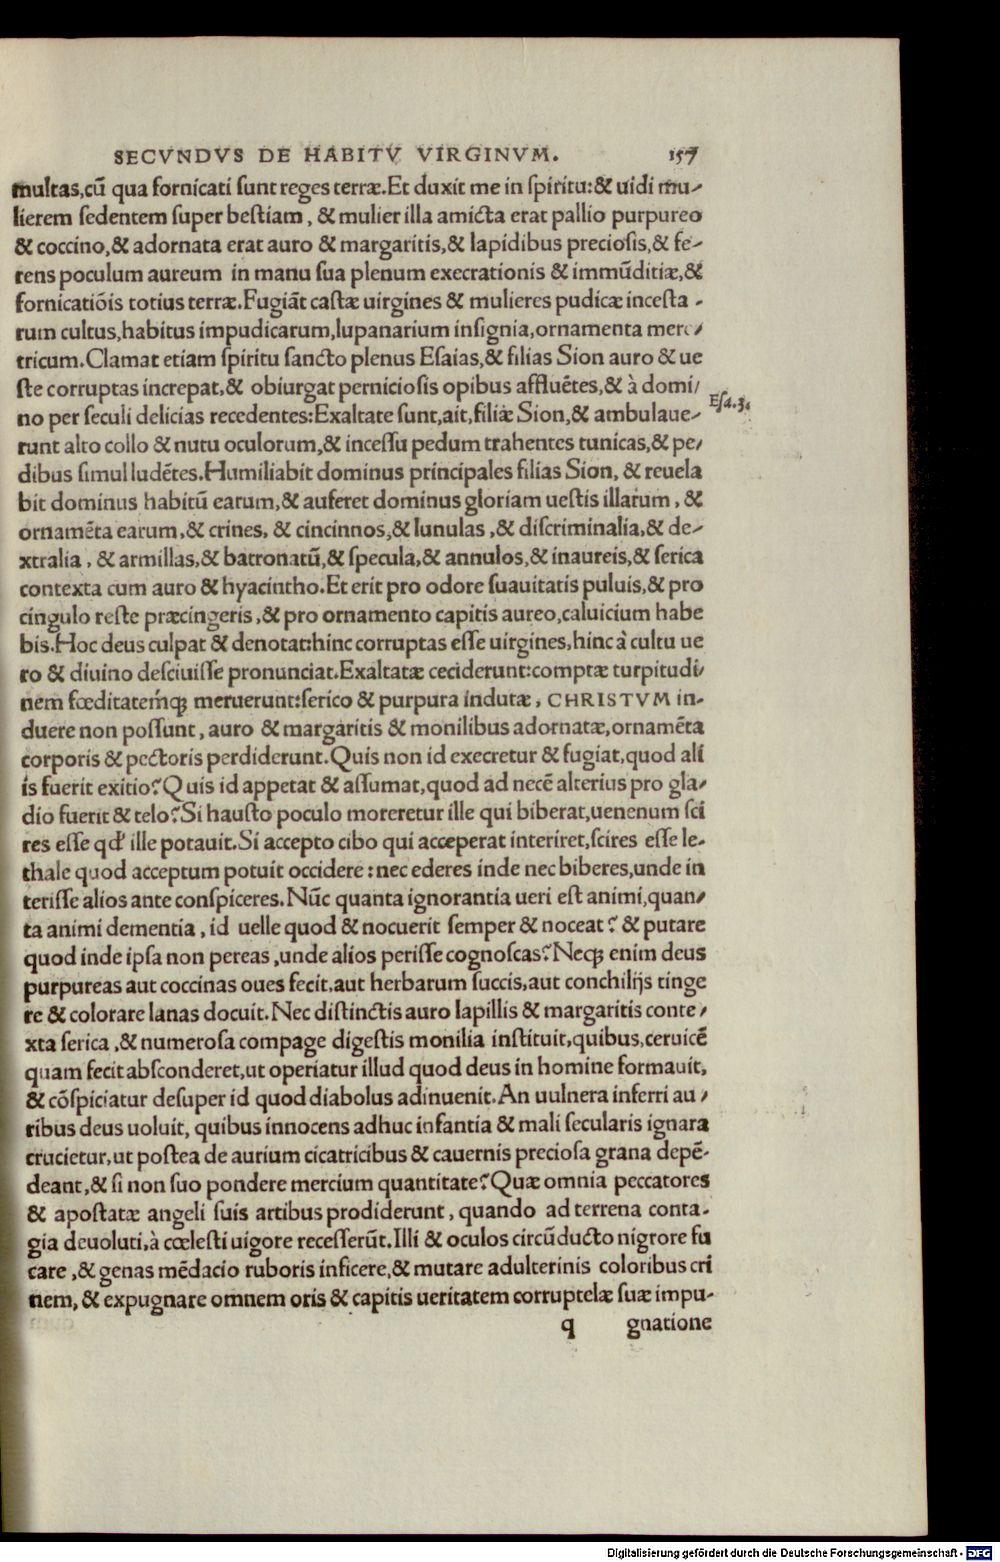 SECVNDVS DE HABITV VIRGINVM. 157
multas,cũ qua fornicati ſunt reges terræ.Et duxit me in ſpiritu:& uidi mu-
lierem ſedentem ſuper beſtiam, & mulier illa amicta erat pallio purpureo
& coccino,& adornata erat auro & margaritis,& lapidibus precioſis,& fe-
rens poculum aureum in manu ſua plenum execrationis & immũditiæ,&
fornicatiõis totius terræ.Fugiãt caſtæ uirgines & mulieres pudicæ inceſta -
rum cultus,habitus impudicarum,lupanarium inſignia,ornamenta mere-
tricum.Clamat etiam ſpiritu ſancto plenus Eſaias,& filias Sion auro & ue
ſte corruptas increpat,& obiurgat pernicioſis opibus affluẽtes,& à domi-
Eſa.3.
no per ſeculi delicias recedentes:Exaltate ſunt,ait,filiæ Sion,& ambulaue-
runt alto collo & nutu oculorum,& inceſſu pedum trahentes tunicas,& pe-
dibus ſimul ludẽtes.Humiliabit dominus principales filias Sion, & reuela
bit dominus habitũ earum,& auferet dominus gloriam ueſtis illarum, &
ornamẽta earum,& crines, & cincinnos,& lunulas ,& diſcriminalia,& de-
xtralia, & armillas,& batronatũ,& ſpecula,& annulos,& inaureis,& ſerica
contexta cum auro & hyacintho.Et erit pro odore ſuauitatis puluis,& pro
cingulo reſte præcingeris,& pro ornamento capitis aureo,caluicium habe
bis.Hoc deus culpat & denotat:hinc corruptas eſſe uirgines,hinc à cultu ue
ro & diuino deſciuiſſe pronunciat.Exaltatæ ceciderunt:comptæ turpitudi-
nem fœditateḿqꝫ meruerunt:ſerico & purpura indutæ, CHRISTVM in-
duere non poſſunt, auro & margaritis & monilibus adornatæ,ornamẽta
corporis & pectoris perdiderunt.Quis non id execretur & fugiat,quod ali
is fuerit exitio?Quis id appetat & aſſumat,quod ad necẽ alterius pro gla-
dio fuerit & telo?Si hauſto poculo moreretur ille qui biberat,uenenum ſci
res eſſe qđ ille potauit.Si accepto cibo qui acceperat interiret,ſcires eſſe le-
thale quod acceptum potuit occidere:nec ederes inde nec biberes,unde in
teriſſe alios ante conſpiceres.Nũc quanta ignorantia ueri eſt animi,quan-
ta animi dementia, id uelle quod & nocuerit ſemper & noceat? & putare
quod inde ipſa non pereas,unde alios periſſe cognoſcas?Neqꝫ enim deus
purpureas aut coccinas oues fecit,aut herbarum ſuccis,aut conchilijs tinge
re & colorare lanas docuit.Nec diſtinctis auro lapillis & margaritis conte-
xta ſerica,& numeroſa compage digeſtis monilia inſtituit,quibus,ceruicẽ
quam fecit abſconderet,ut operiatur illud quod deus in homine formauit,
& cõſpiciatur deſuper id quod diabolus adinuenit.An uulnera inferri au-
ribus deus uoluit, quibus innocens adhuc infantia & mali ſecularis ignara
crucietur,ut poſtea de aurium cicatricibus & cauernis precioſa grana depẽ-
deant,& ſi non ſuo pondere mercium quantitate?Quæ omnia peccatores
& apoſtatæ angeli ſuis artibus prodiderunt, quando ad terrena conta-
gia deuoluti,à cœleſti uigore receſſerũt.Illi & oculos circũducto nigrore fu
care,& genas mẽdacio ruboris inficere,& mutare adulterinis coloribus cri
nem, & expugnare omnem oris & capitis ueritatem corruptelæ ſuæ impu-
q gnatione
Digitalisierung gefördert durch die Deutsche Forschungsgemeinschaft - DFG